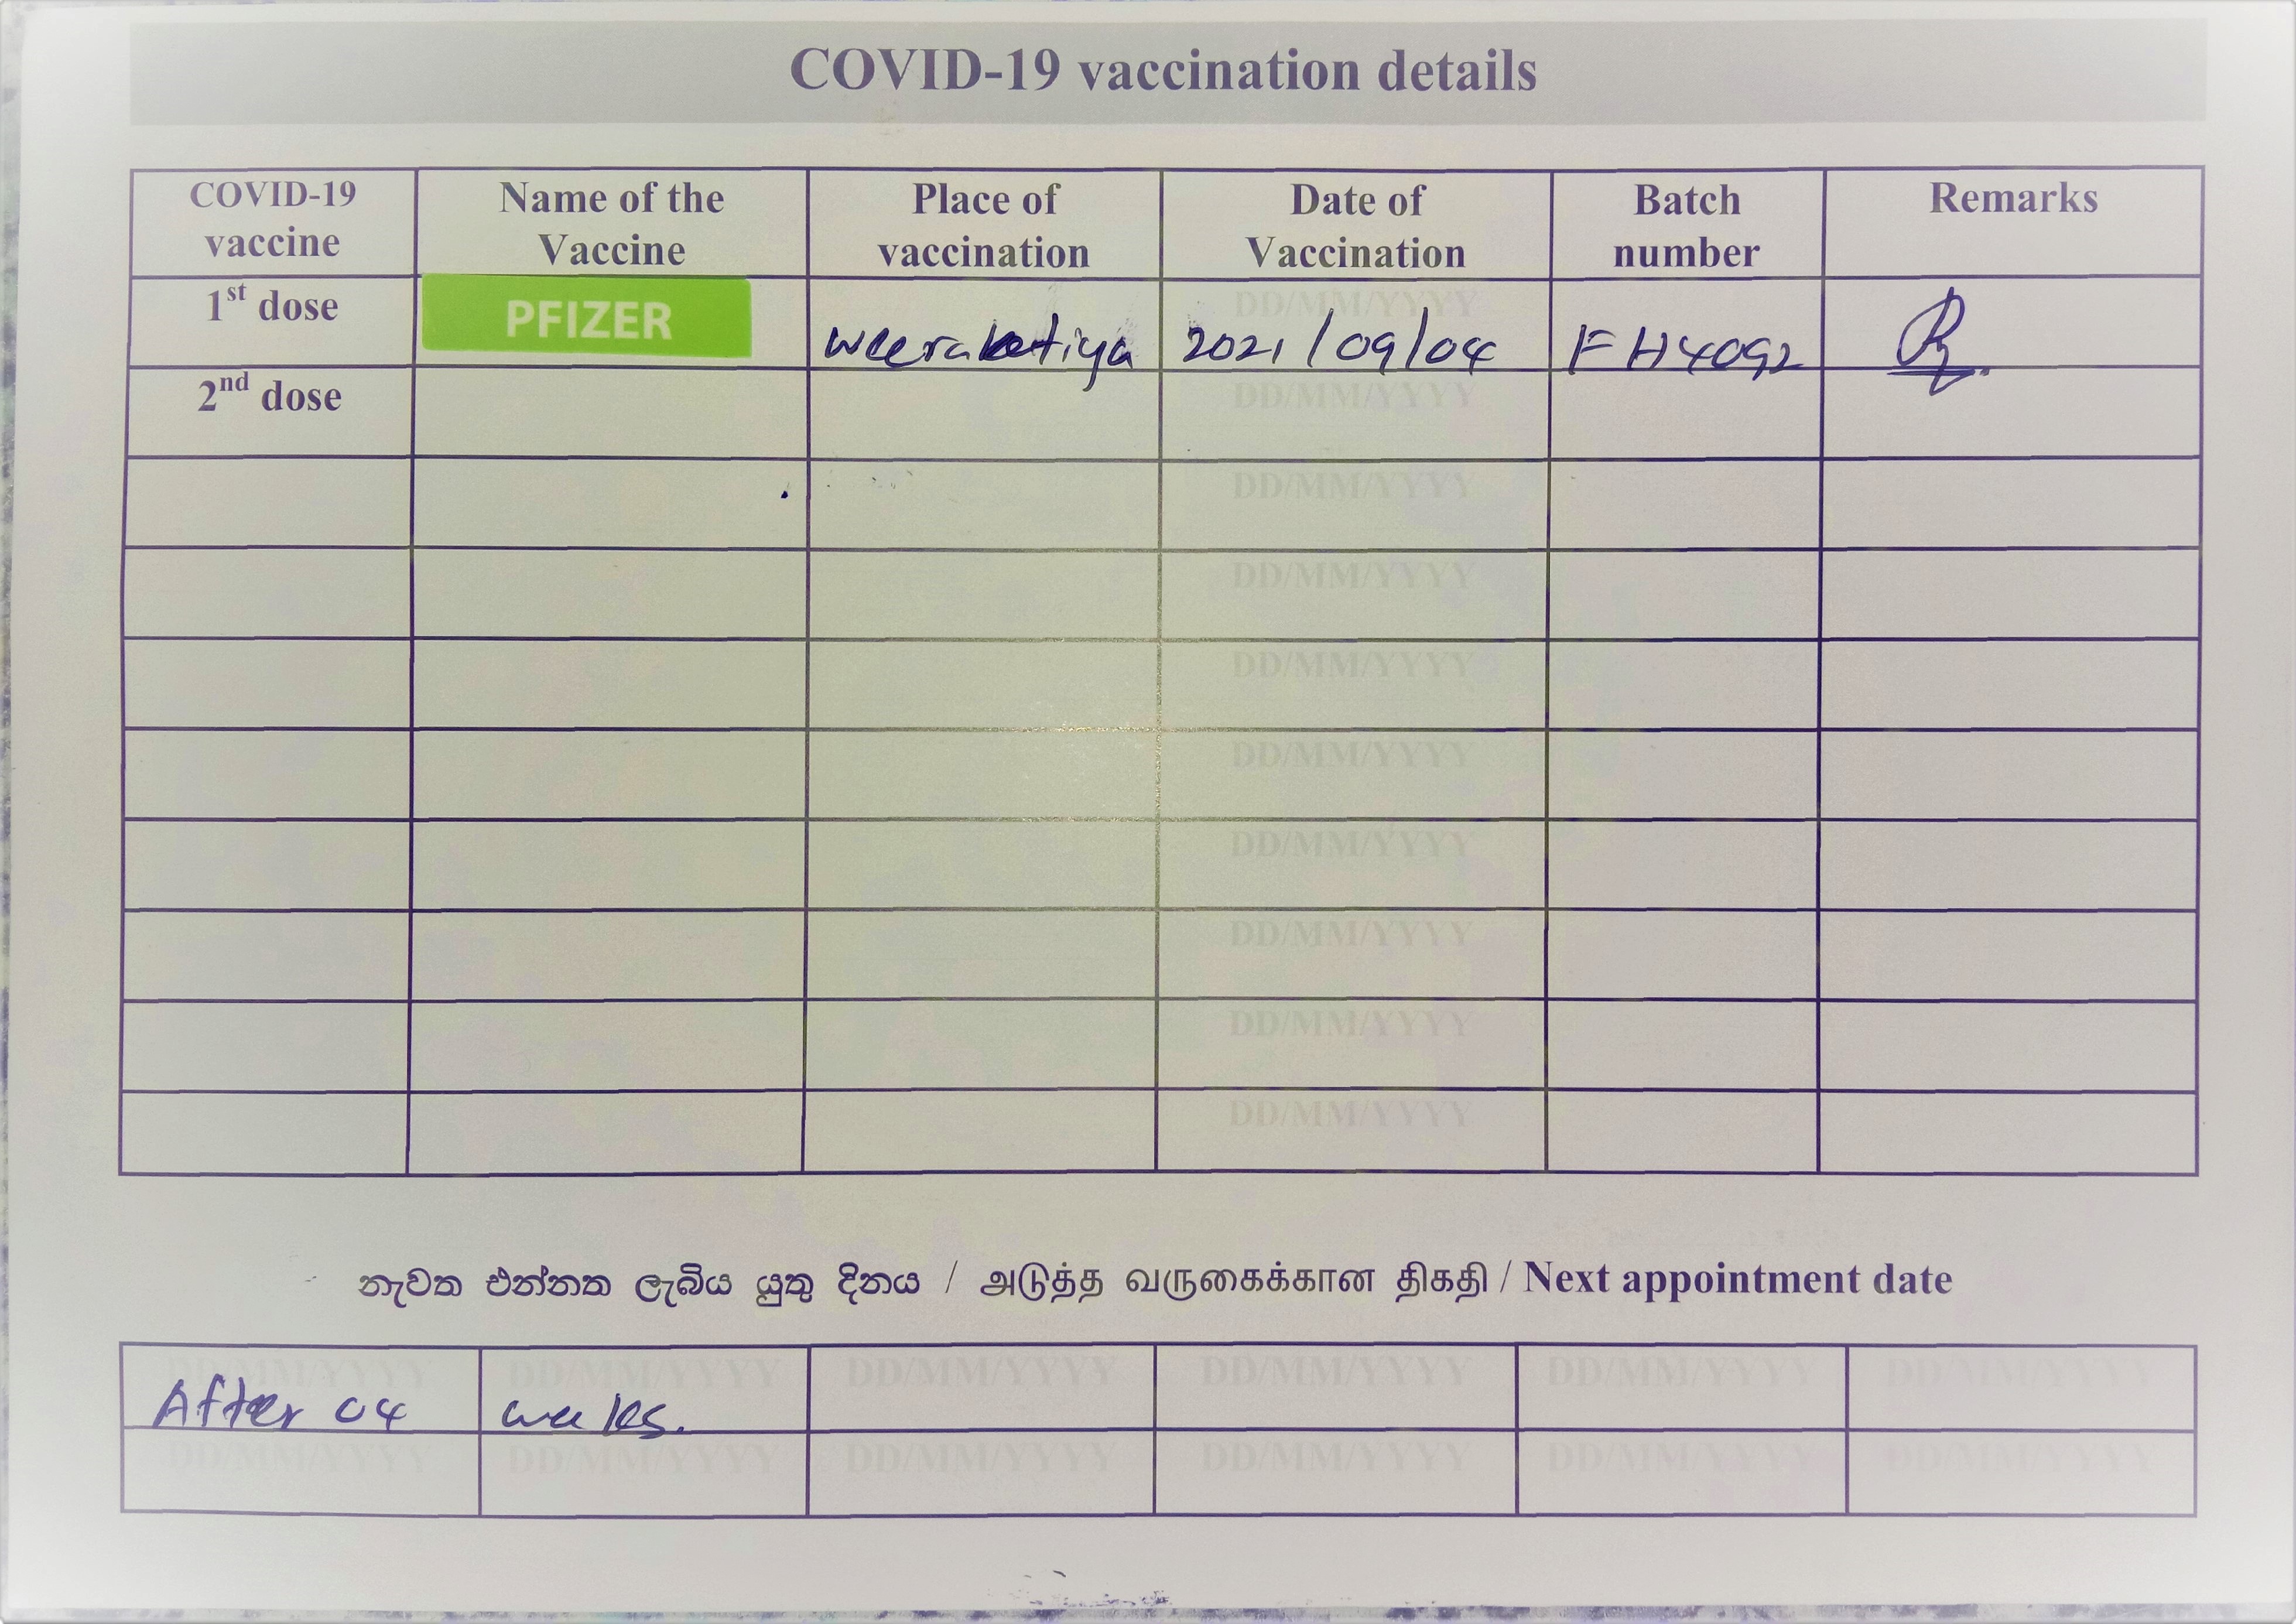 COVID-19 vaccination details
COVID-19 vaccine Name of the Vaccine Place of vaccination Date of Vaccination Batch number Remarks
1st dose PFIZER weeraketiya DD/MM/YYYY 2021/09/04 FH4092
2nd dose DD/MM/YYYY
DD/MM/YYYY
DD/MM/YYYY
DD/MM/YYYY
DD/MM/YYYY
DD/MM/YYYY
DD/MM/YYYY
DD/MM/YYYY
DD/MM/YYYY
නැවත එන්නත ලැබිය යුතු දිනය / அடுத்த வருகைக்கான திகதி / Next appointment date
DD/MM/YYYY DD/MM/YYYY DD/MM/YYYY DD/MM/YYYY DD/MM/YYYY DD/MM/YYYY
After 04 weeks.
DD/MM/YYYY DD/MM/YYYY DD/MM/YYYY DD/MM/YYYY DD/MM/YYYY DD/MM/YYYY